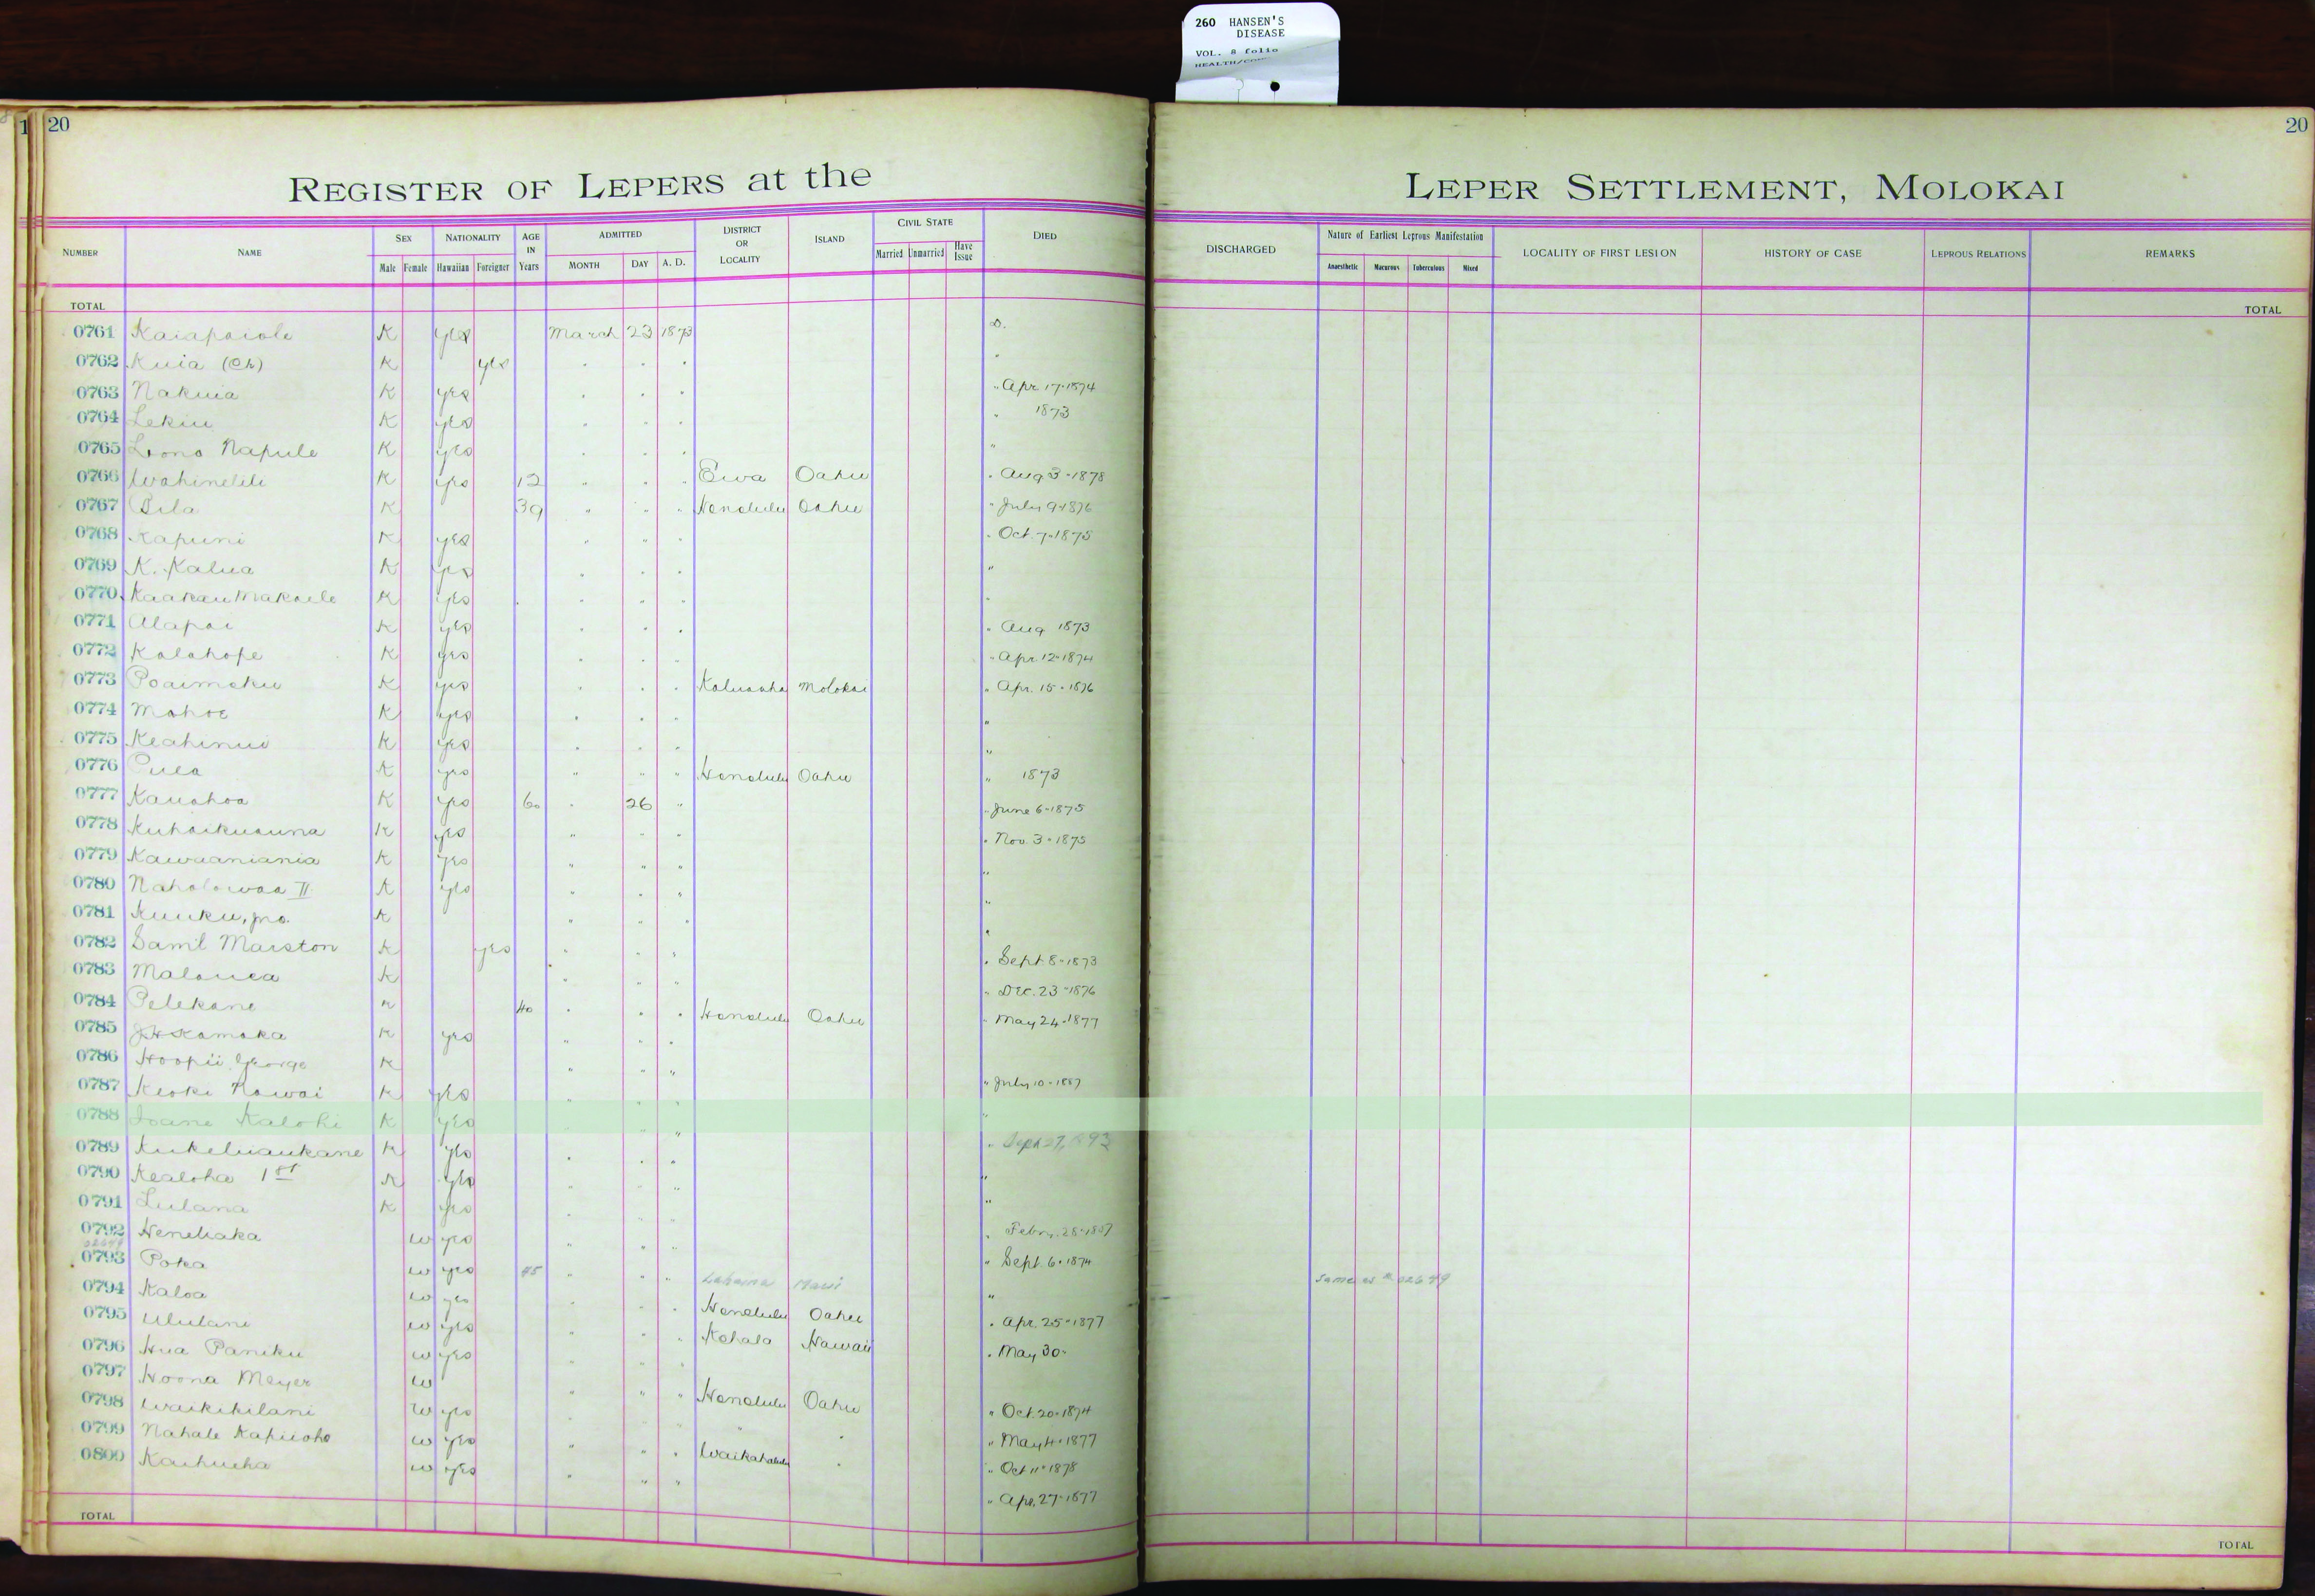 260 HANSEN'S
DISEASE
VOL. 8 folio
20
20
REGISTER OF LEPERS at the LEPER SETTLEMENT, MOLOKAI
NUMBER NAME SEX NATIONALITY AGE IN Years ADMITTED DISTRICT OR LOCALITY ISLAND CIVIL STATE DIED DISCHARGED Nature of Earliest Leprous Manifestation LOCALITY OF FIRST LESION HISTORY OF CASE LEPROUS RELATIONS REMARKS
Male Female Hawaiian Foreigner MONTH DAY A. D. Married Unmarried Have Issue Anaesthetic Macurous Tuberculous Mixed
TOTAL TOTAL
0761 Kaiapaiole K yes March 23 1873 D.
0762 Kuia (Ch) K yes
0763 Nakuia K yes " Apr 17-1874
0764 Lekiu K yes " 1873
0765 Lono Napule K yes "
0766 Wahinelili K yes 12 " " " Ewa Oahu " Aug 3-1878
0767 Pila K 39 " " " Honolulu Oahu " July 9-1876
0768 Kapuni K yes " " " Oct. 7-1875
0769 K. Kalua K yes "
0770 Kaakau Makaele K yes
0771 Alapai K yes " Aug 1873
0772 Kalahope K yes " Apr. 12-1874
0773 Poaimoku K yes Kaluaaha Molokai " Apr. 15-1876
0774 Mahoe K yes "
0775 Keahinui K yes "
0776 Puea K yes " " " Honolulu Oahu " 1873
0777 Kauahoa K yes 60 " 26 " " June 6-1875
0778 Kuhaikuauna K yes " " " " Nov. 3-1875
0779 Kawaaniania K yes " " " "
0780 Naholowaa II K yes " " " "
0781 Kuuku, Jno. K " " "
0782 Saml Marston K yes " " " " Sept 8-1873
0783 Malouea K " " " " Dec. 23-1876
0784 Pelekane K 40 " " " Honolulu Oahu " May 24-1877
0785 J.H. Kamaka K yes " " "
0786 Hoopii George K " " "
0787 Keoki Kawai K yes " " " " July 10-1887
0788 Ioane Kalohi K yes " " "
0789 Kukeliaukane K yes " " "
0790 Kealoha 1st K yes " " " "
0791 Lulana K yes " " " "
0792 Heneliaka W yes " " "
02649
0793 Poka W yes 45 " " " Lahaina Maui " Sept. 6-1874 Same as # 02649
0794 Kaloa W yes Honolulu Oahu "
0795 Ululani W yes " " " Kohala Hawaii " Apr. 25-1877
0796 Hua Paniku W yes " May 30-
0797 Hoona Meyer W " " " Honolulu Oahu
0798 Waikikilani W yes " Oct. 20-1874
0799 Nahale Kapuoho W yes " " " Waikahalulu " " May 4-1877
0800 Kaihueha W yes " " " " Oct 11-1878
" Apr. 27-1877
TOTAL TOTAL